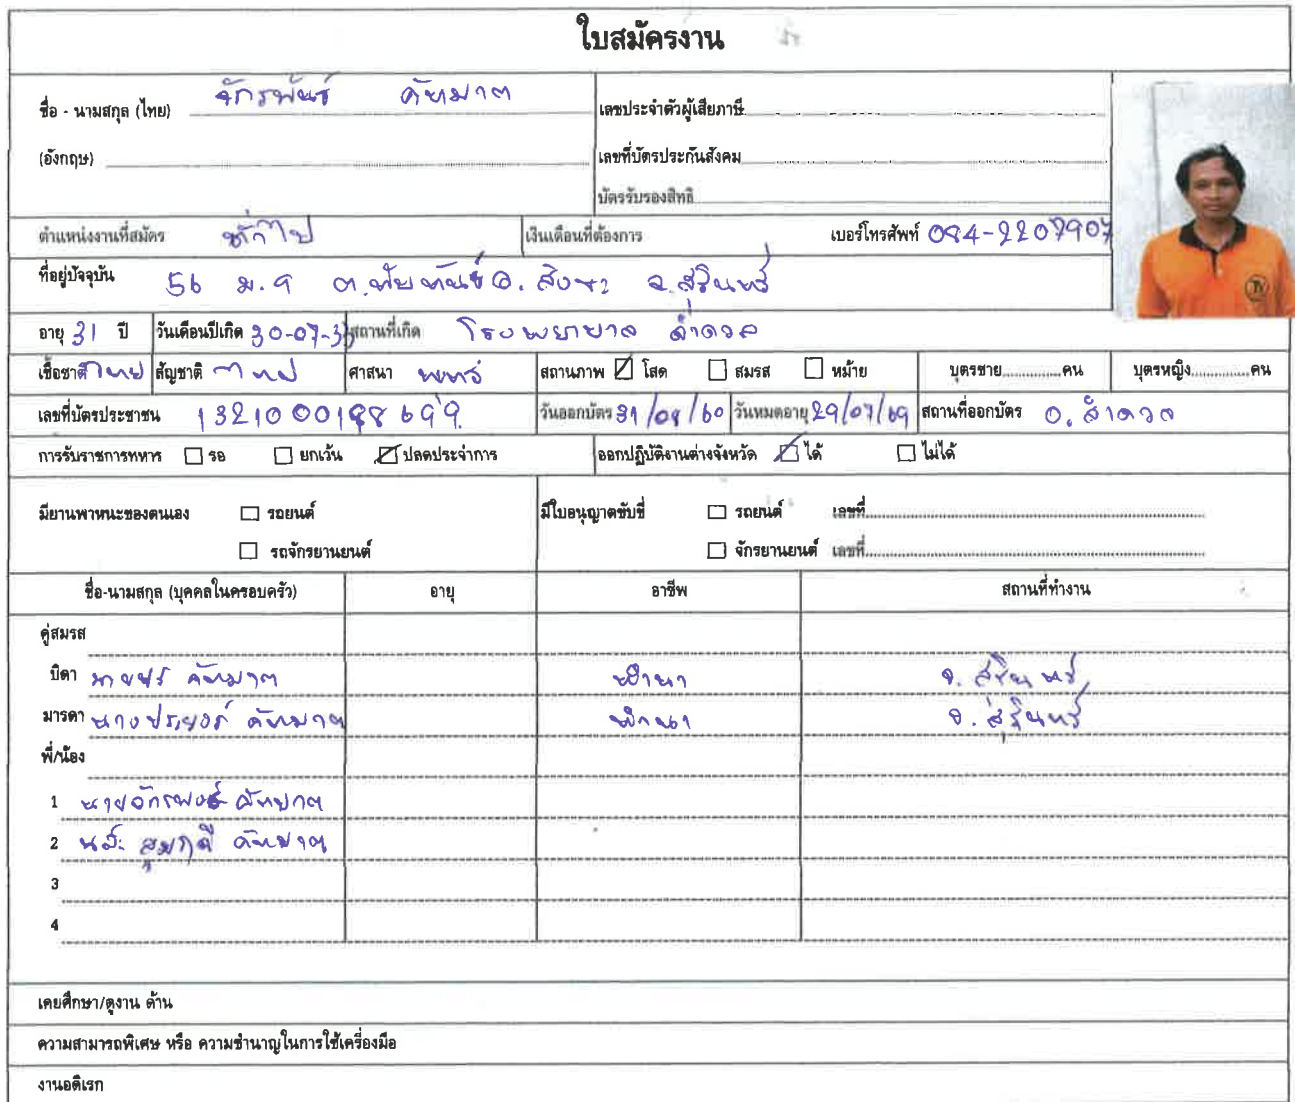 ใบสมัครงาน
ชื่อ - นามสกุล (ไทย) จักรพันธ์ คัทมาต เลขประจำตัวผู้เสียภาษี
(อังกฤษ) เลขที่บัตรประกันสังคม
บัตรรับรองสิทธิ
ตำแหน่งงานที่สมัคร ทั่วไป เงินเดือนที่ต้องการ เบอร์โทรศัพท์ 084-2207907
ที่อยู่ปัจจุบัน 56 ม.9 ต.ทัพทันธ์ อ.สังขะ จ.สุรินทร์
อายุ 31 ปี วันเดือนปีเกิด 30-07-33 สถานที่เกิด โรงพยาบาล ลำดวล
เชื้อชาติ ไทย สัญชาติ ไทย ศาสนา พุทธ สถานภาพ โสด สมรส หม้าย บุตรชาย..............คน บุตรหญิง..............คน
เลขที่บัตรประชาชน 1321000188699 วันออกบัตร 31/08/60 วันหมดอายุ 29/07/69 สถานที่ออกบัตร อ.ลำดวล
การรับราชการทหาร รอ ยกเว้น ปลดประจำการ ออกปฏิบัติงานต่างจังหวัด ได้ ไม่ได้
มียานพาหนะของตนเอง รถยนต์ มีใบอนุญาตขับขี่ รถยนต์ เลขที่
รถจักรยานยนต์ จักรยานยนต์ เลขที่
ชื่อ-นามสกุล (บุคคลในครอบครัว) อายุ อาชีพ สถานที่ทำงาน
คู่สมรส
บิดา คัทมาต ทำนา จ.สุรินทร์
มารดา นางประยงค์ คัทมาต ทำนา จ.สุรินทร์
พี่/น้อง
1 นายจักรพงษ์ คัทมาต
2 นส. สุมาลี คัทมาต
3
4
เคยศึกษา/ดูงาน ด้าน
ความสามารถพิเศษ หรือ ความชำนาญในการใช้เครื่องมือ
งานอดิเรก